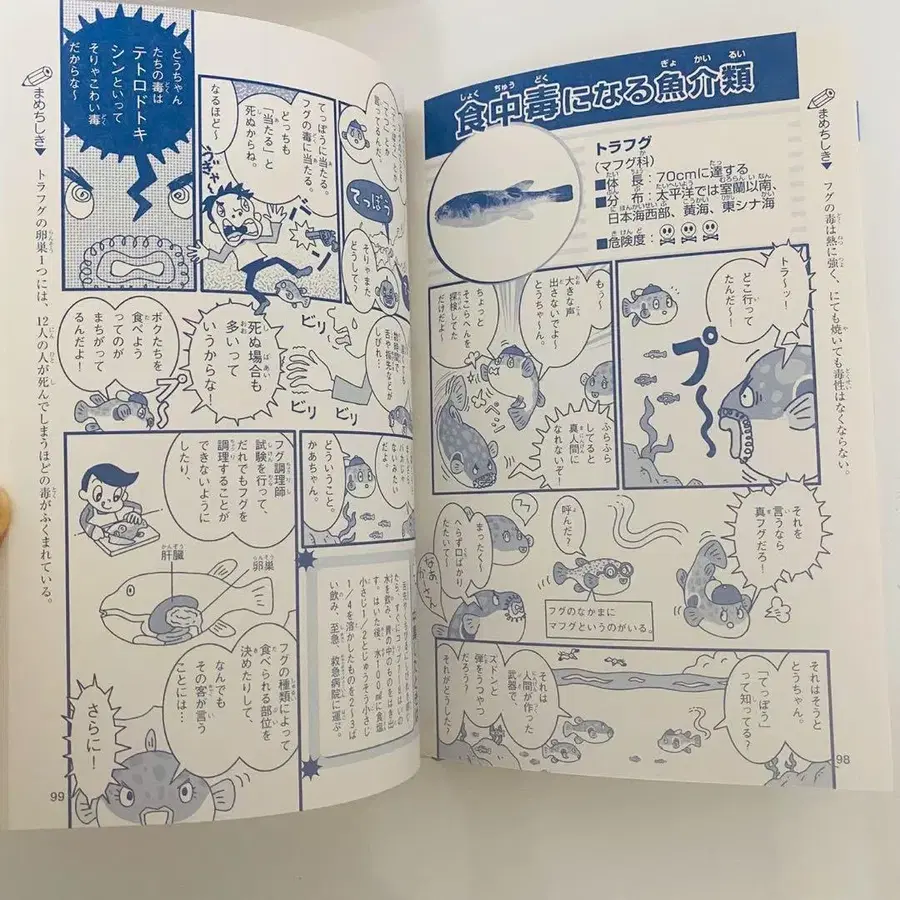 食中毒になる魚介類
まめちしき▼ フグの毒は熱に強く、にても焼いても毒性はなくならない。
トラフグ
(マフグ科)
■体長:70cmに達する
■分布:太平洋では室蘭以南、
日本海西部、黄海、東シナ海
■危険度:
トラ〜ッ!
どこ行って
たんだ〜!
プ〜
もぅ〜
大きな声
出さないでよ
とうちゃ〜ん。
ちょっと
そこらへんを
探検してた
だけだよ〜
ふらふら
してると
真人間に
なれないぞ!
それを
言うなら
真フグだろ!
呼んだ?
フグのなかまに
マフグというのがいる。
まったく〜
へらず口ばかり
たたいて〜
なぁ、
かーさん
それはそうと
とうちゃん。
「てっぽう」
って知ってる?
それは
人間が作った
武器で、
ズドンと
弾をうつやつ
だろう?
それがどうした?
98
てっぽう
そりゃまた
どうして?
てっぽうに当たる。
フグの毒に当たる。
どっちも
「当たる」と
死ぬからね。
なるほど〜
うぎゃ〜
バーン
とうちゃん
たちの毒は
テトロドトキ
シンといって
そりゃこわい毒
だからな〜
ビリ
ビリ
ビリ
ビリ
死ぬ場合も
多いって
いうからな!
ボクたちを
食べよう
ってのが
まちがって
るんだよ!
プ〜
どういうこと。
かあちゃん。
フグ調理師
試験を行って、
だれでもフグを
調理することが
できないように
したり、
肝臓
卵巣
フグの種類によって
食べられる部位を
決めたりして、
なんでも
その客が言う
ことには…
さらに!
水を飲み、胃の中のものをはき出
す。はいた後、水100mlに食塩
小さじ1/2とじゅうそう小さじ
1/4を溶かしたものを2〜3ぱ
い飲み、至急、救急病院に運ぶ。
まめちしき▼ トラフグの卵巣1つには、12人の人が死んでしまうほどの毒がふくまれている。
99